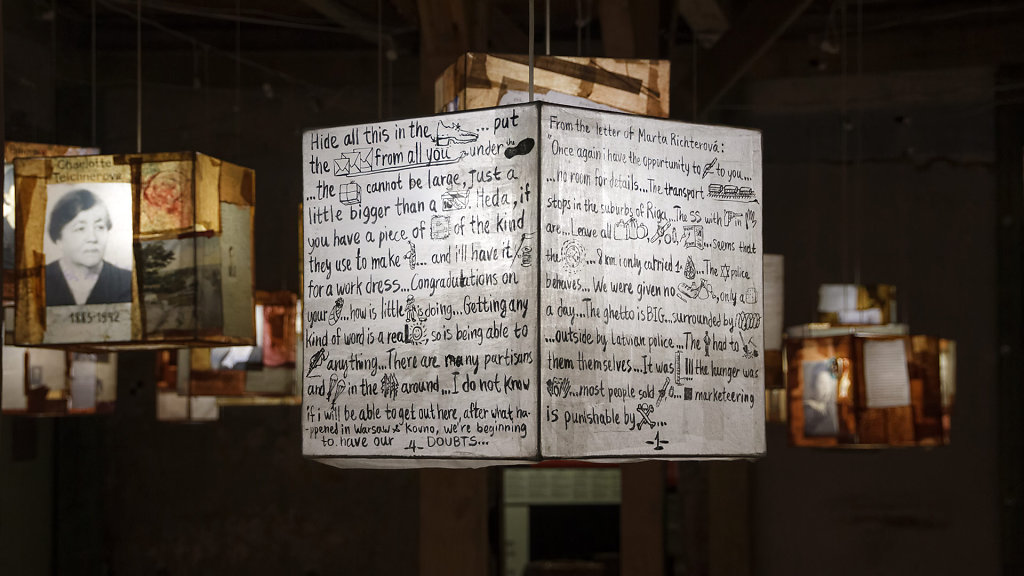 Charlotte
Teichnerová
1885-1942
Hide all this in the ... put
the from all you under the
...the cannot be large, just a
little bigger than a Heda, if
you have a piece of of the kind
they use to make ... and i'll have it
for a work dress... Congradulations on
your ...how is little doing... Getting any
kind of word is a real so is being able to
anything... There are many partisans
and in the around ... I do not know
if i will be able to get out here, after what ha-
-ppened in Warsaw & Kovno, we're beginning
to have our DOUBTS...
-4-
From the letter of Marta Richterová:
"Once again i have the opportunity to to you....
...no room for details... The transport
stops in the suburbs of Riga... The SS with in
are... Leave all ... seems that
the ... 8 km i only carried 1 ... The police
behaves... We were given no , only a
a day... The ghetto is BIG... surrounded by
...outside by Latvian police... The had to
them themselves... It was !!! the hunger was
...most people sold a... marketeering
is punishable by ...
-1-